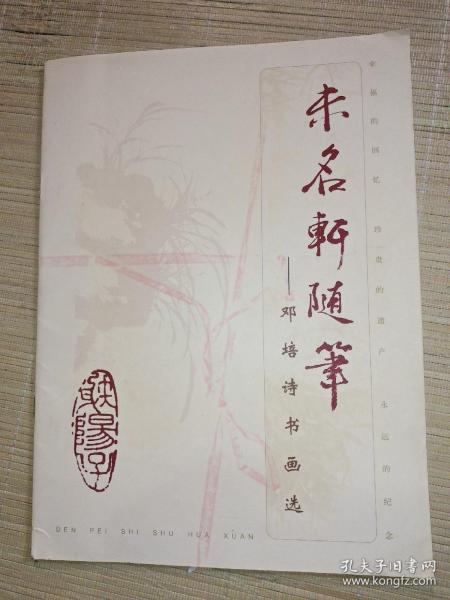 未名軒随筆
——邓培诗书画选
幸福的回忆 珍贵的遗产 永远的纪念
DEN PEI SHI SHU HUA XUAN
孔夫子旧书网
www.kongfz.com